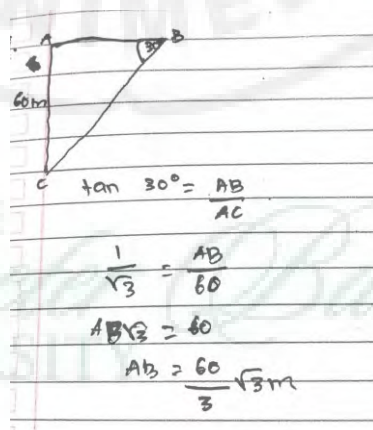 A B
30°
60m
C
tan 30° = AB/AC
1/√3 = AB/60
AB√3 = 60
AB = 60/3 √3 m